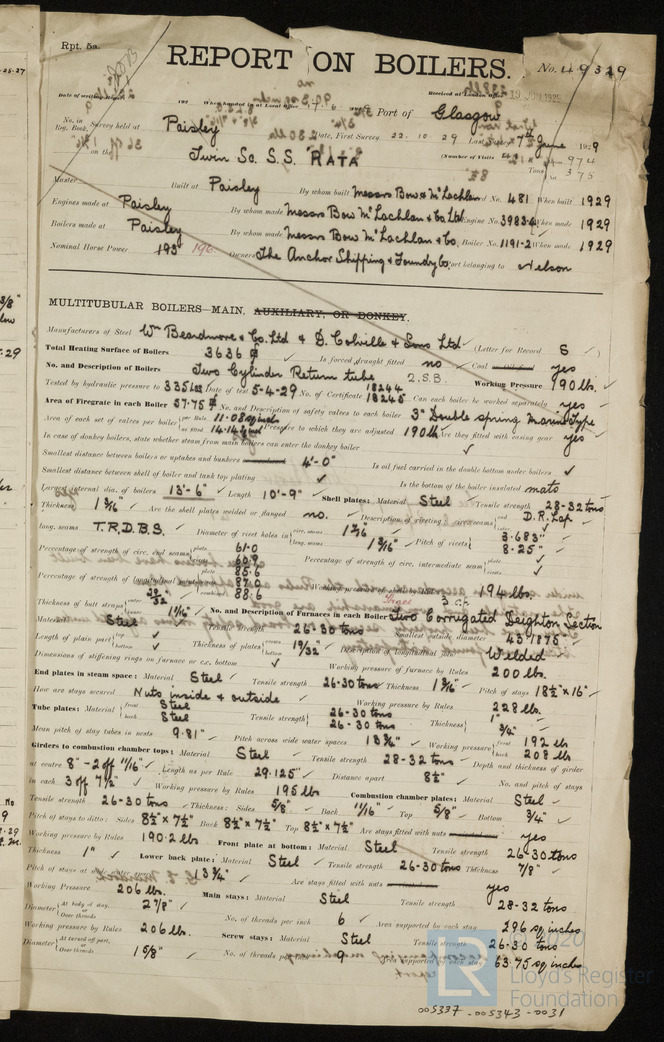 Rpt. 5a.
REPORT ON BOILERS.
No. 49329
Received at London Office 19 JUN 1929
Port of Glasgow
No. in Reg. Book. Survey held at Paisley Date, First Survey 22. 10. 29 Last Survey 7th June 1929
on the Twin Sc. S.S. RATA (Number of Visits Gross 974
Tons Net 375
Master Built at Paisley By whom built Messrs Bow McLachlan Yard No. 481 When built 1929
Engines made at Paisley By whom made Messrs Bow McLachlan & Co Ltd Engine No. 3983-4 When made 1929
Boilers made at Paisley By whom made Messrs Bow McLachlan & Co. Boiler No. 1191-2 When made 1929
Nominal Horse Power 193 196 Owners The Anchor Shipping & Foundry Co Port belonging to Nelson
MULTITUBULAR BOILERS—MAIN, AUXILIARY, OR DONKEY.
Manufacturers of Steel Wm Beardmore & Co. Ltd & D. Colville & Sons Ltd (Letter for Record S )
Total Heating Surface of Boilers 3636 Is forced draught fitted no Coal or Oil fired yes
No. and Description of Boilers Two Cylinder Return tube 2.S.B. Working Pressure 190 lbs.
Tested by hydraulic pressure to 335 lbs Date of test 5-4-29 No. of Certificate 18244 18245 Can each boiler be worked separately yes
Area of Firegrate in each Boiler 57.75 No. and Description of safety valves to each boiler 3" Double spring Marine Type
Area of each set of valves per boiler per Rule 11.08 sq ins as fitted 14.14 Pressure to which they are adjusted 190 lb Are they fitted with easing gear yes
In case of donkey boilers, state whether steam from main boilers can enter the donkey boiler ✓
Smallest distance between boilers or uptakes and bunkers 4'-0" Is oil fuel carried in the double bottom under boilers ✓
Smallest distance between shell of boiler and tank top plating ✓ Is the bottom of the boiler insulated mats
Largest internal dia. of boilers 13'-6" Length 10'-9" Shell plates: Material Steel Tensile strength 28-32 tons
Thickness 1 3/16" Are the shell plates welded or flanged no. Description of riveting: circ. seams end D.R. Lap
long. seams T.R.D.B.S. Diameter of rivet holes in circ. seams 1 3/16 long. seams 1 3/16" Pitch of rivets 3.683" 8.25"
Percentage of strength of circ. end seams plate 61.0 rivets 60.9 Percentage of strength of circ. intermediate seam ✓
Percentage of strength of longitudinal joint plate 85.6 rivets 87.0 combined 88.6 Working pressure of shell by Rules 194 lbs.
Thickness of butt straps outer 29/32 inner 1 1/16" No. and Description of Furnaces in each Boiler Two Corrugated Deighton Section
Material Steel Tensile strength 26-30 tons Smallest outside diameter 43.1875"
Length of plain part top bottom ✓ Thickness of plates 19/32" Description of longitudinal joint Welded
Dimensions of stiffening rings on furnace or c.c. bottom ✓ Working pressure of furnace by Rules 200 lbs.
End plates in steam space: Material Steel Tensile strength 26-30 tons Thickness 1 3/16" Pitch of stays 18½" x 16"
How are stays secured Nuts inside & outside Working pressure by Rules 228 lbs.
Tube plates: Material front Steel back Steel Tensile strength 26-30 tons 26-30 tons Thickness 1" 3/4"
Mean pitch of stay tubes in nests 9.81" Pitch across wide water spaces 13 3/4" Working pressure front 192 lb back 208 lb
Girders to combustion chamber tops: Material Steel Tensile strength 28-32 tons Depth and thickness of girder
at centre 8"-2 off 11/16" Length as per Rule 29.125" Distance apart 8½" No. and pitch of stays
in each 3 off 7½" Working pressure by Rules 195 lb Combustion chamber plates: Material Steel
Tensile strength 26-30 tons Thickness: Sides 5/8" Back 11/16" Top 5/8" Bottom 3/4"
Pitch of stays to ditto: Sides 8½" x 7½" Back 8½" x 7½" Top 8½" x 7½" Are stays fitted with nuts yes
Working pressure by Rules 190.2 lb Front plate at bottom: Material Steel Tensile strength 26-30 tons
Thickness 1" Lower back plate: Material Steel Tensile strength 26-30 tons Thickness 7/8"
Pitch of stays at 13 3/4" Are stays fitted with nuts yes
Working Pressure 206 lbs. Main stays: Material Steel Tensile strength 28-32 tons
Diameter At body of stay, or Over threads 2 7/8" No. of threads per inch 6 Area supported by each stay 296 sq inches
Working pressure by Rules 206 lbs. Screw stays: Material Steel Tensile strength 26-30 tons
Diameter At turned off part, or Over threads 1 5/8" No. of threads per inch 9 Area supported by each stay 63.75 sq inches
LR
© 2020
Lloyd's Register
Foundation
005337-005343-0031